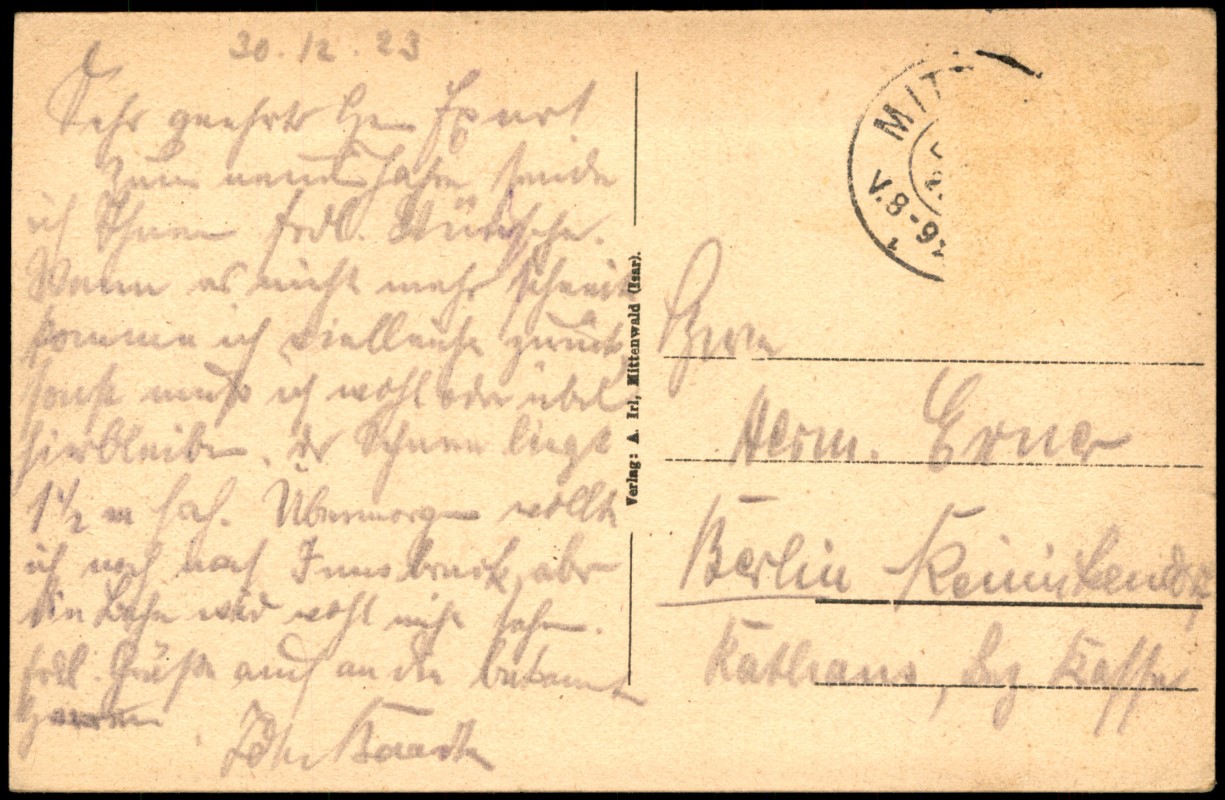 30.12.23
Sehr geehrter Herr
Zum neuen Jahre sende
ich Ihnen frdl. Wünsche.
Wenn es nicht mehr schneit
komme ich vielleicht zurück
sonst muß ich wohl oder übel
hierbleiben. Der Schnee liegt
1 1/2 m hoch. Übermorgen wollte
ich noch nach Innsbruck, aber
die Bahn wird wohl nicht fahren.
frdl. Grüße auch an die bekannten
Herren
Ihr
Verlag: A. Irl, Mittenwald (Isar).
MIT
V. 8-9
Herrn
Herm. Erner
Berlin Reinickendorf
Rathaus,